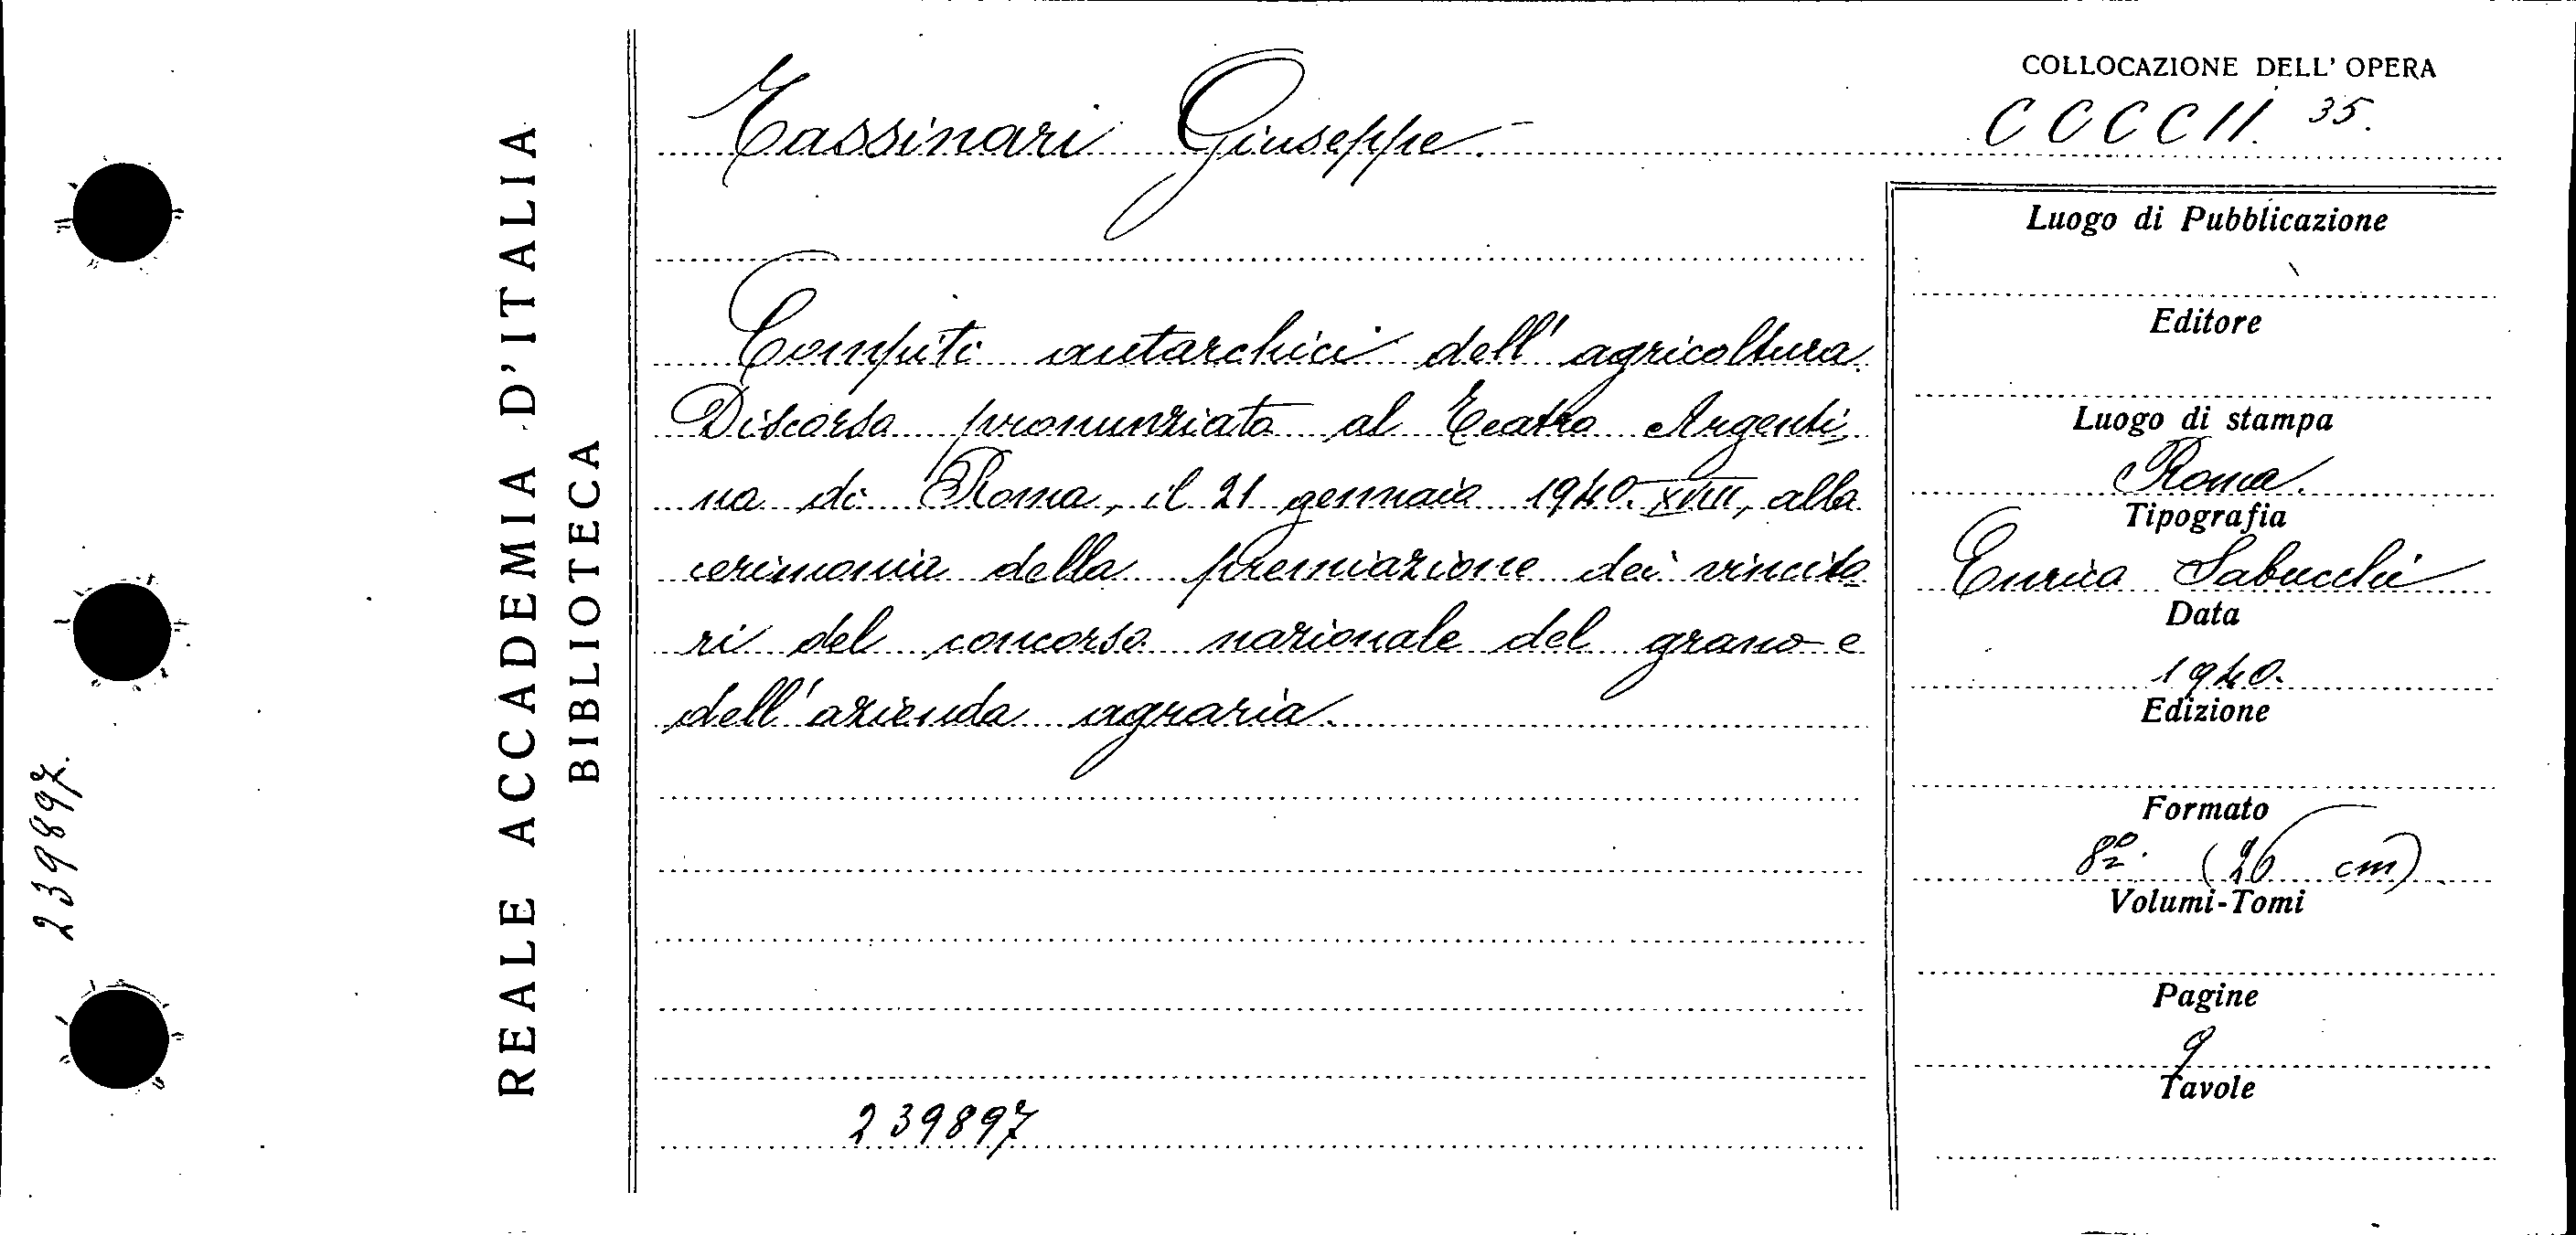 COLLOCAZIONE DELL' OPERA
CCCCII. 35.
Tassinari Giuseppe.-
Compiti autarchici dell'agricoltura.
Discorso pronunziato al Teatro Argenti
na di Roma, il 21 gennaio 1940. XVIII, alla
cerimonia della premiazione dei vincito
ri del concorso nazionale del grano e
dell'azienda agraria.
239897
Luogo di Pubblicazione
Editore
Luogo di stampa
Roma.
Tipografia
Enrico Sabucchi
Data
1940.
Edizione
Formato
8º. (26 cm)
Volumi-Tomi
Pagine
9
Tavole
REALE ACCADEMIA D'ITALIA
BIBLIOTECA
239897.